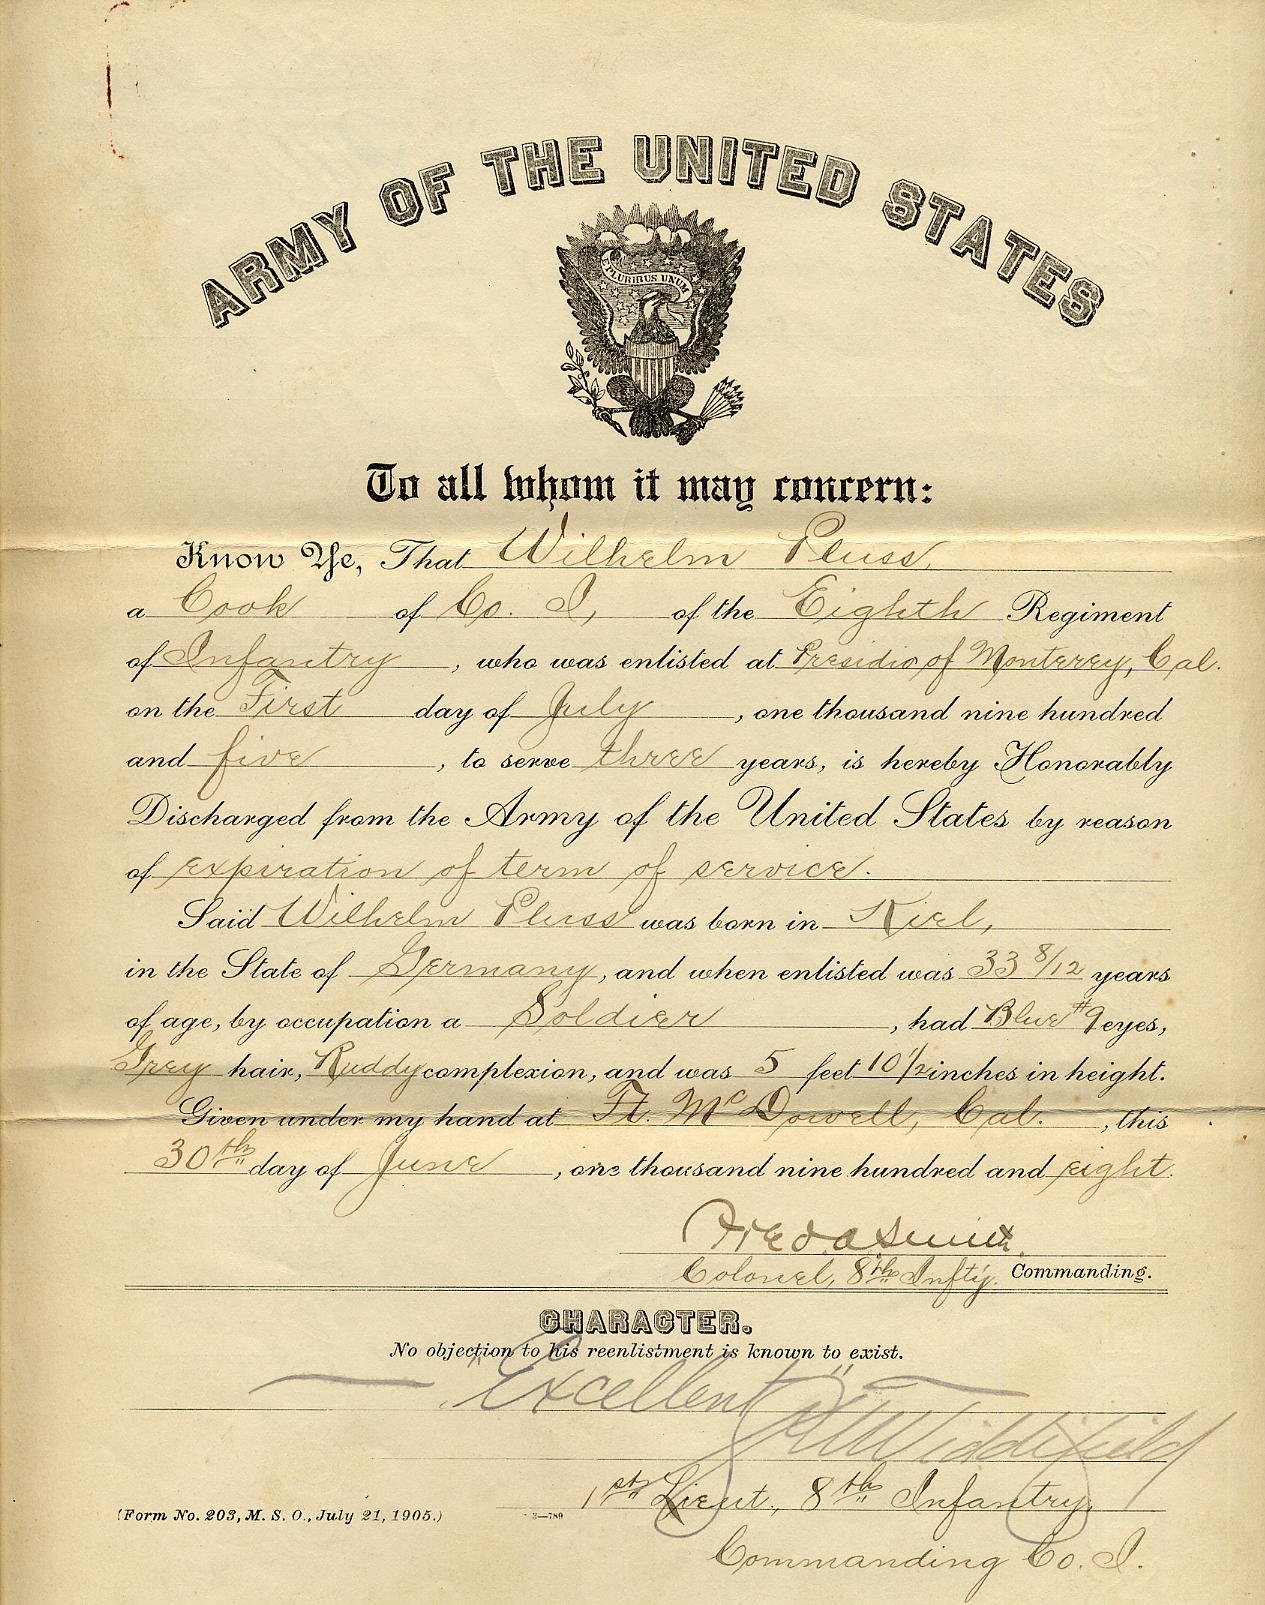 ARMY OF THE UNITED STATES
E PLURIBUS UNUM
To all whom it may concern:
Know Ye, That Wilhelm Pluss,
a Cook of Co. I, of the Eighth Regiment
of Infantry, who was enlisted at Presidio of Monterey, Cal.
on the First day of July, one thousand nine hundred
and five, to serve three years, is hereby Honorably
Discharged from the Army of the United States by reason
of expiration of term of service.
Said Wilhelm Pluss was born in Kiel,
in the State of Germany, and when enlisted was 33 8/12 years
of age, by occupation a Soldier, had Blue #9 eyes,
Grey hair, Ruddy complexion, and was 5 feet 10 1/2 inches in height.
Given under my hand at Ft. McDowell, Cal., this
30th day of June, one thousand nine hundred and eight.
Fred A Smith
Colonel, 8th Infty. Commanding.
CHARACTER.
No objection to his reenlistment is known to exist.
"Excellent"
Widdifield
1st Lieut., 8th Infantry,
(Form No. 203, M. S. O., July 21, 1905.) 3—789
Commanding Co. I.